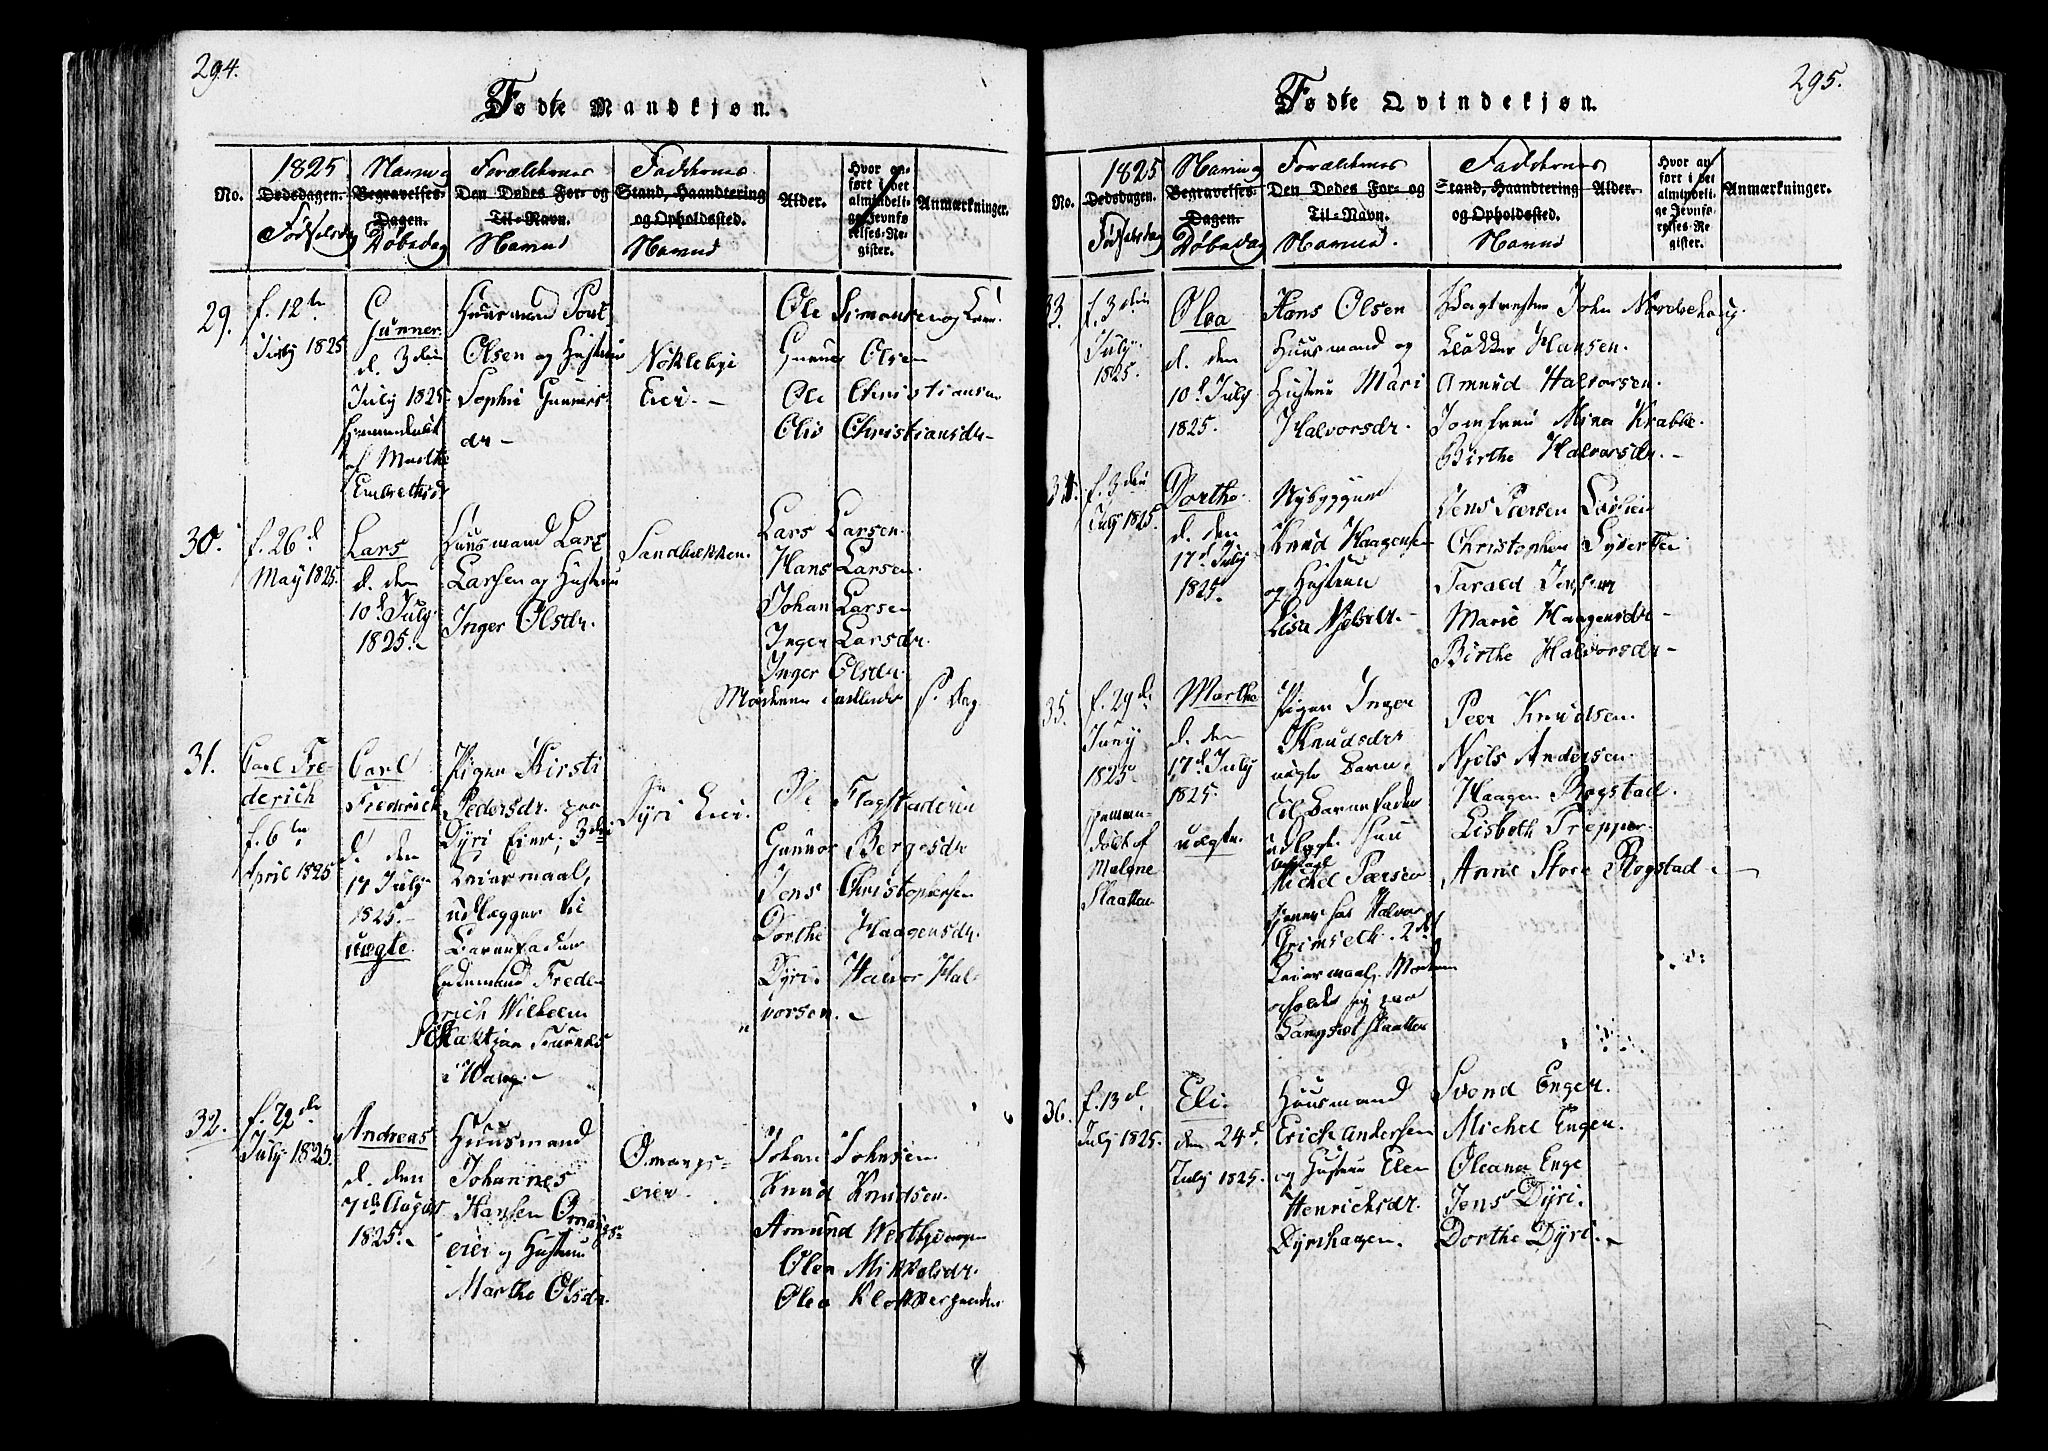 294.
Fødte Mandkjøn.
No.
1825
Dødsdagen.
Fødselsdag
Navn og
Begravelses-
Dagen.
Døbedag
Forældrenes
Den Dødes For- og
Til-Navn.
Navne
Faddernes
Stand, Haandtering
og Opholdssted.
Navne
Alder.
Hvor an-
ført i det
almindeli-
ge Jevnfø-
relses-Re-
gister.
Anmærkninger.
29.
f. 12te
July 1825
Gunner
d. 3die
July 1825
Hjemmedøbt
af Marthe
Embrethsdr
Huusmand Poul
Olsen og Hustrue
Sophie Gunners-
dr -
Nøklebye
Eier. -
Ole Simensen
Gunner Olsen
Ole Christiansen
Olive Christiansdr-
30.
f. 26d.
May 1825.
Lars
d. den
10d July
1825. -
Huusmand Lars
Larsen og Hustrue
Inger Olsdr.
Sandbækken.
Lars Larsen.
Hans Larsen.
Johan Larsen
Inger Larsdr.
Inger Olsdr.
31.
Carl Fre-
derich
f. 6te
April 1825
Carl
Frederich
d. den
17 July
1825. -
uægte.
Pigen Kirsti
Pedersdr. paa
Dyri Eier, 3die
Leiermaal,
udlægger til
Barnefader
Frede-
rich Wilhelm
i Wang. -
Dyri Eier.
Ole Flagstadeie
Gunnor Bergesdr
Jens Christophersen
Dorthe Haagensdr.
Dyri. Halvor Hal-
vorsen. -
32.
July 1825.
Andreas
d. den
7de August
1825. -
Huusmand
Johannes
Hansen Omangs-
eier og Hustrue
Marthe Olsdr.
Omangs-
eier.
Johan Johnsen.
Knud Knudsen.
Amund
Olea Mikkelsdr.
Olea
295.
Fødte Qvindekjøn.
No.
1825
Dødsdagen.
Fødselsdag
Navn og
Begravelses-
Dagen.
Døbedag
Forældrenes
Den Dødes For- og
Til-Navn.
Navne.
Faddernes
Stand, Haandtering
og Opholdssted.
Navne
Alder.
Hvor an-
ført i det
almindeli-
ge Jevnfø-
relses-Re-
gister.
Anmærkninger.
33.
f. 3die
July
1825.
Olea
d. den
10d July
1825.
Hans Olsen
Huusmand og
Hustrue Mari
Halvorsdr.
John
Klokker Hansen.
Amund Halvorsen.
Jomfrue Mina Krabbe.
Birthe Halvorsdr. -
34.
f. 3die
July 1825.
Dorthe.
d. den
17d July
1825.
Nybyggeren
Knud Haagensen
og Hustrue
Lisa
Jens Pærsen
Christopher
Tarald Jensen
Marie Haagensdr-
Birthe Halvorsdr-
35.
f. 29d.
Juny
1825.
hjemme-
døbt af
Malene
Slaatten
Marthe
d. den
17d July
1825.
uægte.
Pigen Inger
Knudsdr
uægte Barn.
til Barnefader
udlagt
Michel Pærsen
tjener hos Halvor
Grimseth. 2det
Leiermaal. Moderen
opholder sig paa
Peer Knudsen.
Njels Andersen
Haagen Rogstad.
Lisbeth Trepper.
Anne Store Rogstad. -
36.
f. 13d.
July 1825.
Eli.
den 24d.
July 1825.
Huusmand
Erick Andersen
og Hustrue Elen
Henrichsdr.
Dyrihagen.
Svend Enger.
Michel Engen.
Oleana Enge
Jens Dyri.
Dorthe Dyri. -